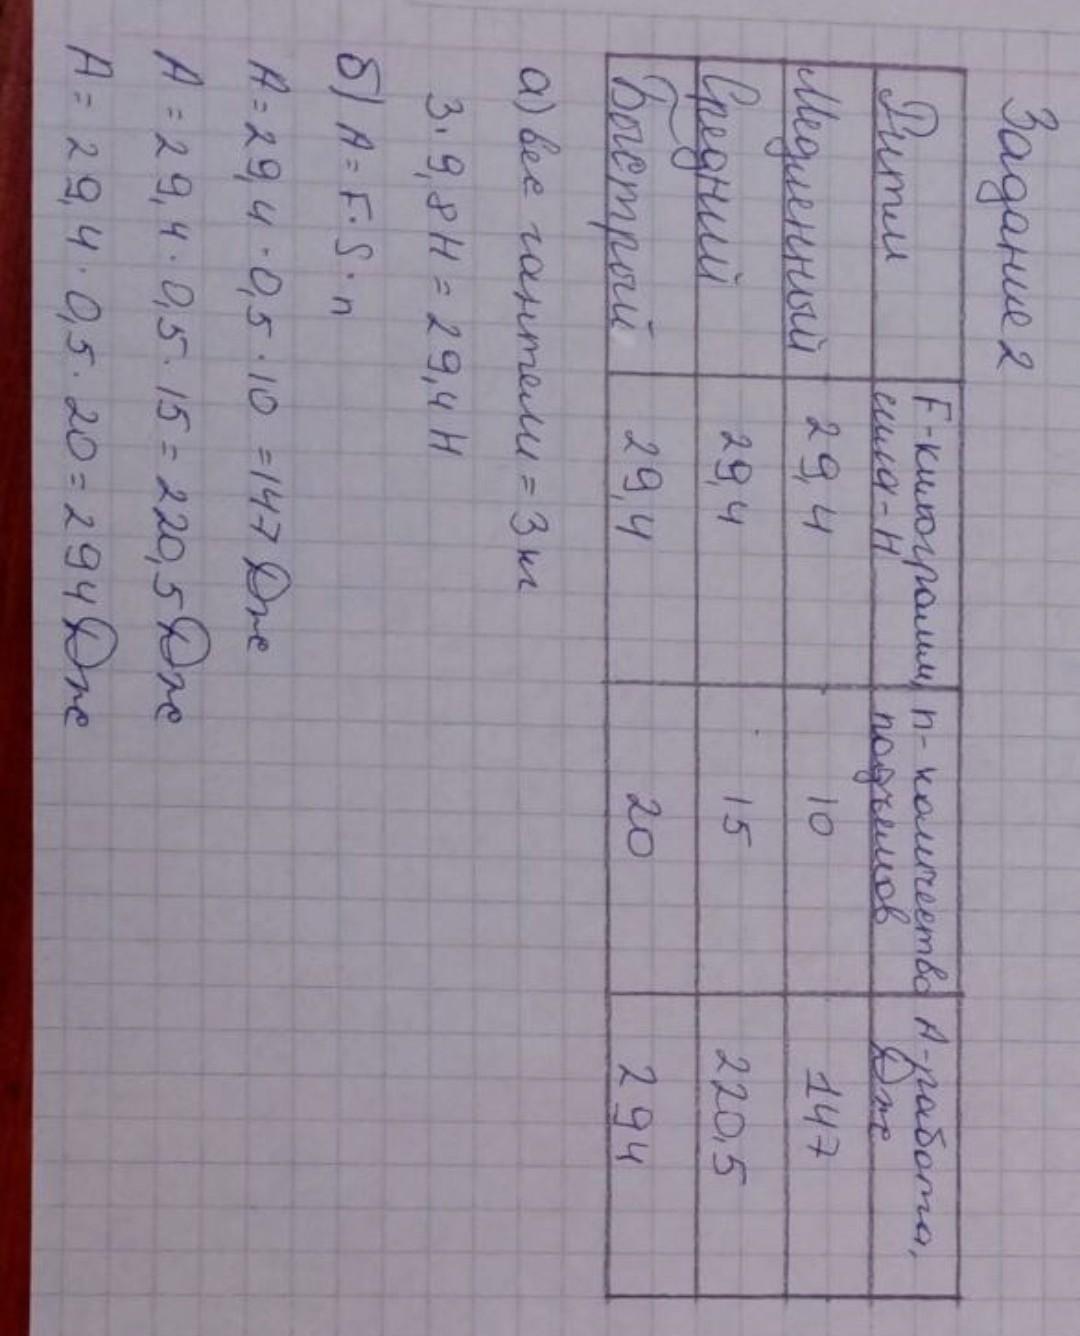 Задание 2
Ритм F-килограмм, n-количество А-работа,
сила-Н подъемов Дж
Медленный 29,4 10 147
Средний 29,4 15 220,5
Быстрый 29,4 20 294
а) вес гантели = 3 кг
3·9,8Н = 29,4 Н
б) А = F·S·n
А = 29,4·0,5·10 = 147 Дж
А = 29,4·0,5·15 = 220,5 Дж
А = 29,4·0,5·20 = 294 Дж